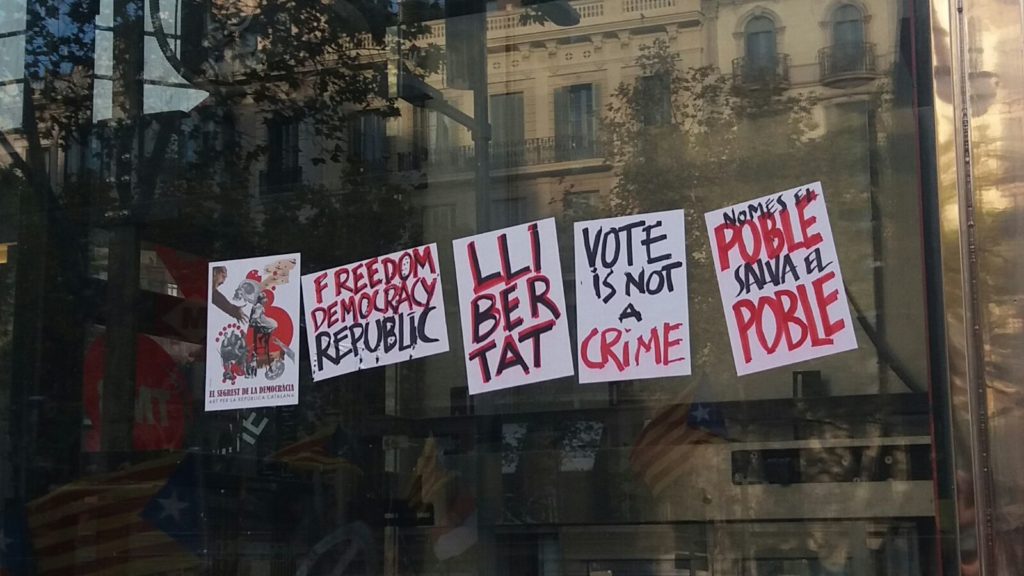 EL SEGREST DE LA DEMOCRÀCIA
ART PER LA REPÚBLICA CATALANA
FREEDOM
DEMOCRACY
REPUBLIC
LLI
BER
TAT
VOTE
iS NOT
A
CRiME
NOMÉS EL
POBLE
SALVA EL
POBLE